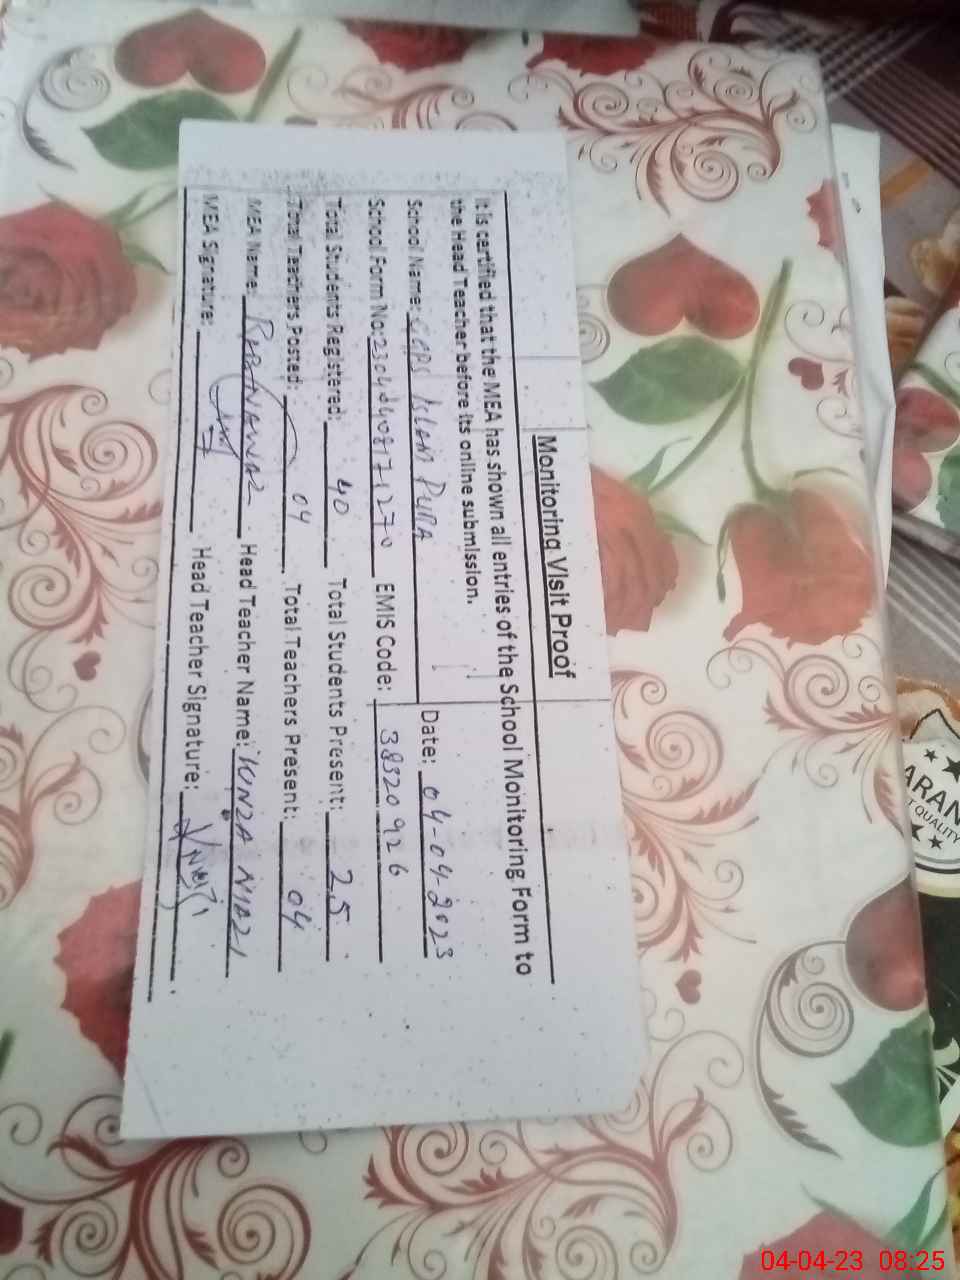 Monitoring Visit Proof
It is certified that the MEA has shown all entries of the School Monitoring Form to
the Head Teacher before its online submission.
School Name: GGPS ISLAM PURA Date: 04-04-2023
School Form No: EMIS Code: 38320926
Total Students Registered: 40 Total Students Present: 25
Total Teachers Posted: 04 Total Teachers Present: 04
MEA Name: RAB NAWAZ Head Teacher Name: KINZA NIAZI
MEA Signature: Head Teacher Signature:
ARAN
T QUALITY
04-04-23 08:25